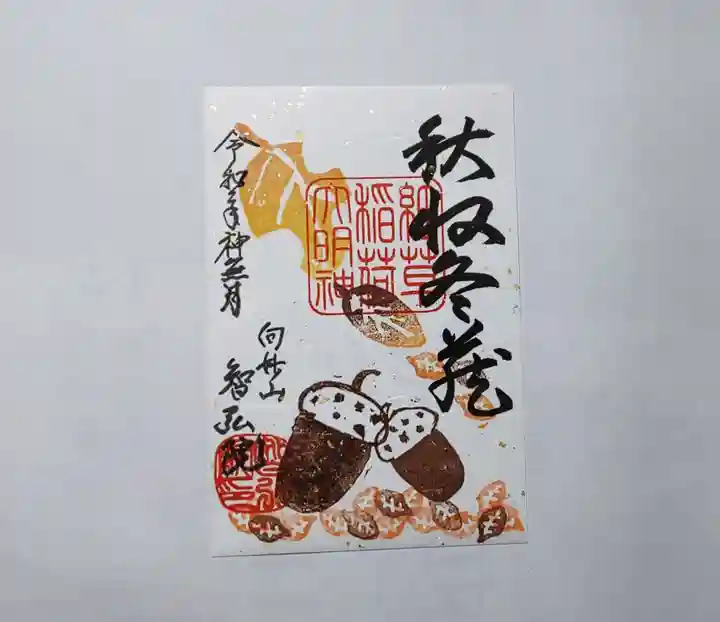 秋収冬蔵
紅葉
稲荷
大明神
令和二年神無月
向林山
智弘院